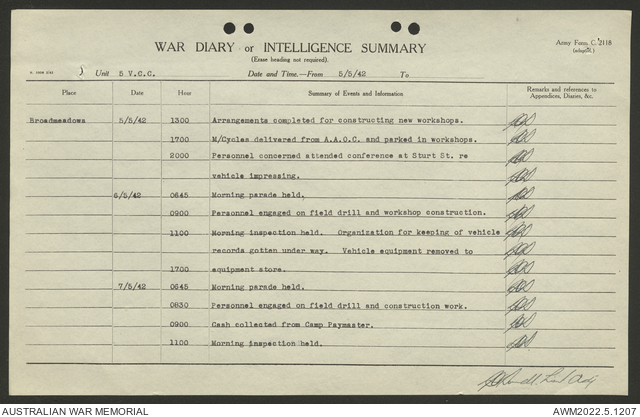 WAR DIARY or INTELLIGENCE SUMMARY
(Erase heading not required).
Army Form C. 2118
(adapted.)
Unit 5 V.C.C. Date and Time.—From 5/5/42 To
Place Date Hour Summary of Events and Information Remarks and references to Appendices, Diaries, &c.
Broadmeadows 5/5/42 1300 Arrangements completed for constructing new workshops.
1700 M/Cycles delivered from A.A.O.C. and parked in workshops.
2000 Personnel concerned attended conference at Sturt St. re
vehicle impressing.
6/5/42 0645 Morning parade held.
0900 Personnel engaged on field drill and workshop construction.
1100 Morning inspection held. Organization for keeping of vehicle
records gotten under way. Vehicle equipment removed to
1700 equipment store.
7/5/42 0645 Morning parade held.
0830 Personnel engaged on field drill and construction work.
0900 Cash collected from Camp Paymaster.
1100 Morning inspection held.
AUSTRALIAN WAR MEMORIAL AWM2022.5.1207